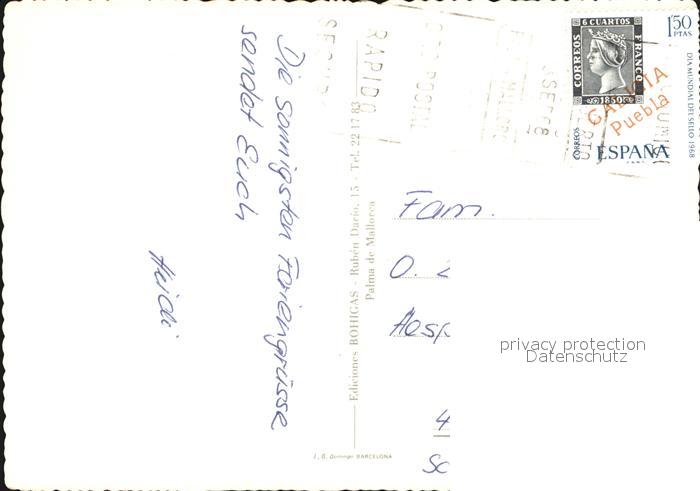 Die sonnigsten Feriengrüsse
sendet Euch
Heidi
Ediciones BOHIGAS - Rubén Darío, 15 - Tel. 22 17 83
Palma de Mallorca
J. G. Domingo BARCELONA
SEGURO
RAPIDO
POSTAL
6 CUARTOS
CORREOS
FRANCO
1850
1'50
PTAS
DIA MUNDIAL DEL SELLO 1968
GALICIA
Puebla
CORREOS
ESPAÑA
Fam.
O.
Hesp
4
Sc
privacy protection
Datenschutz